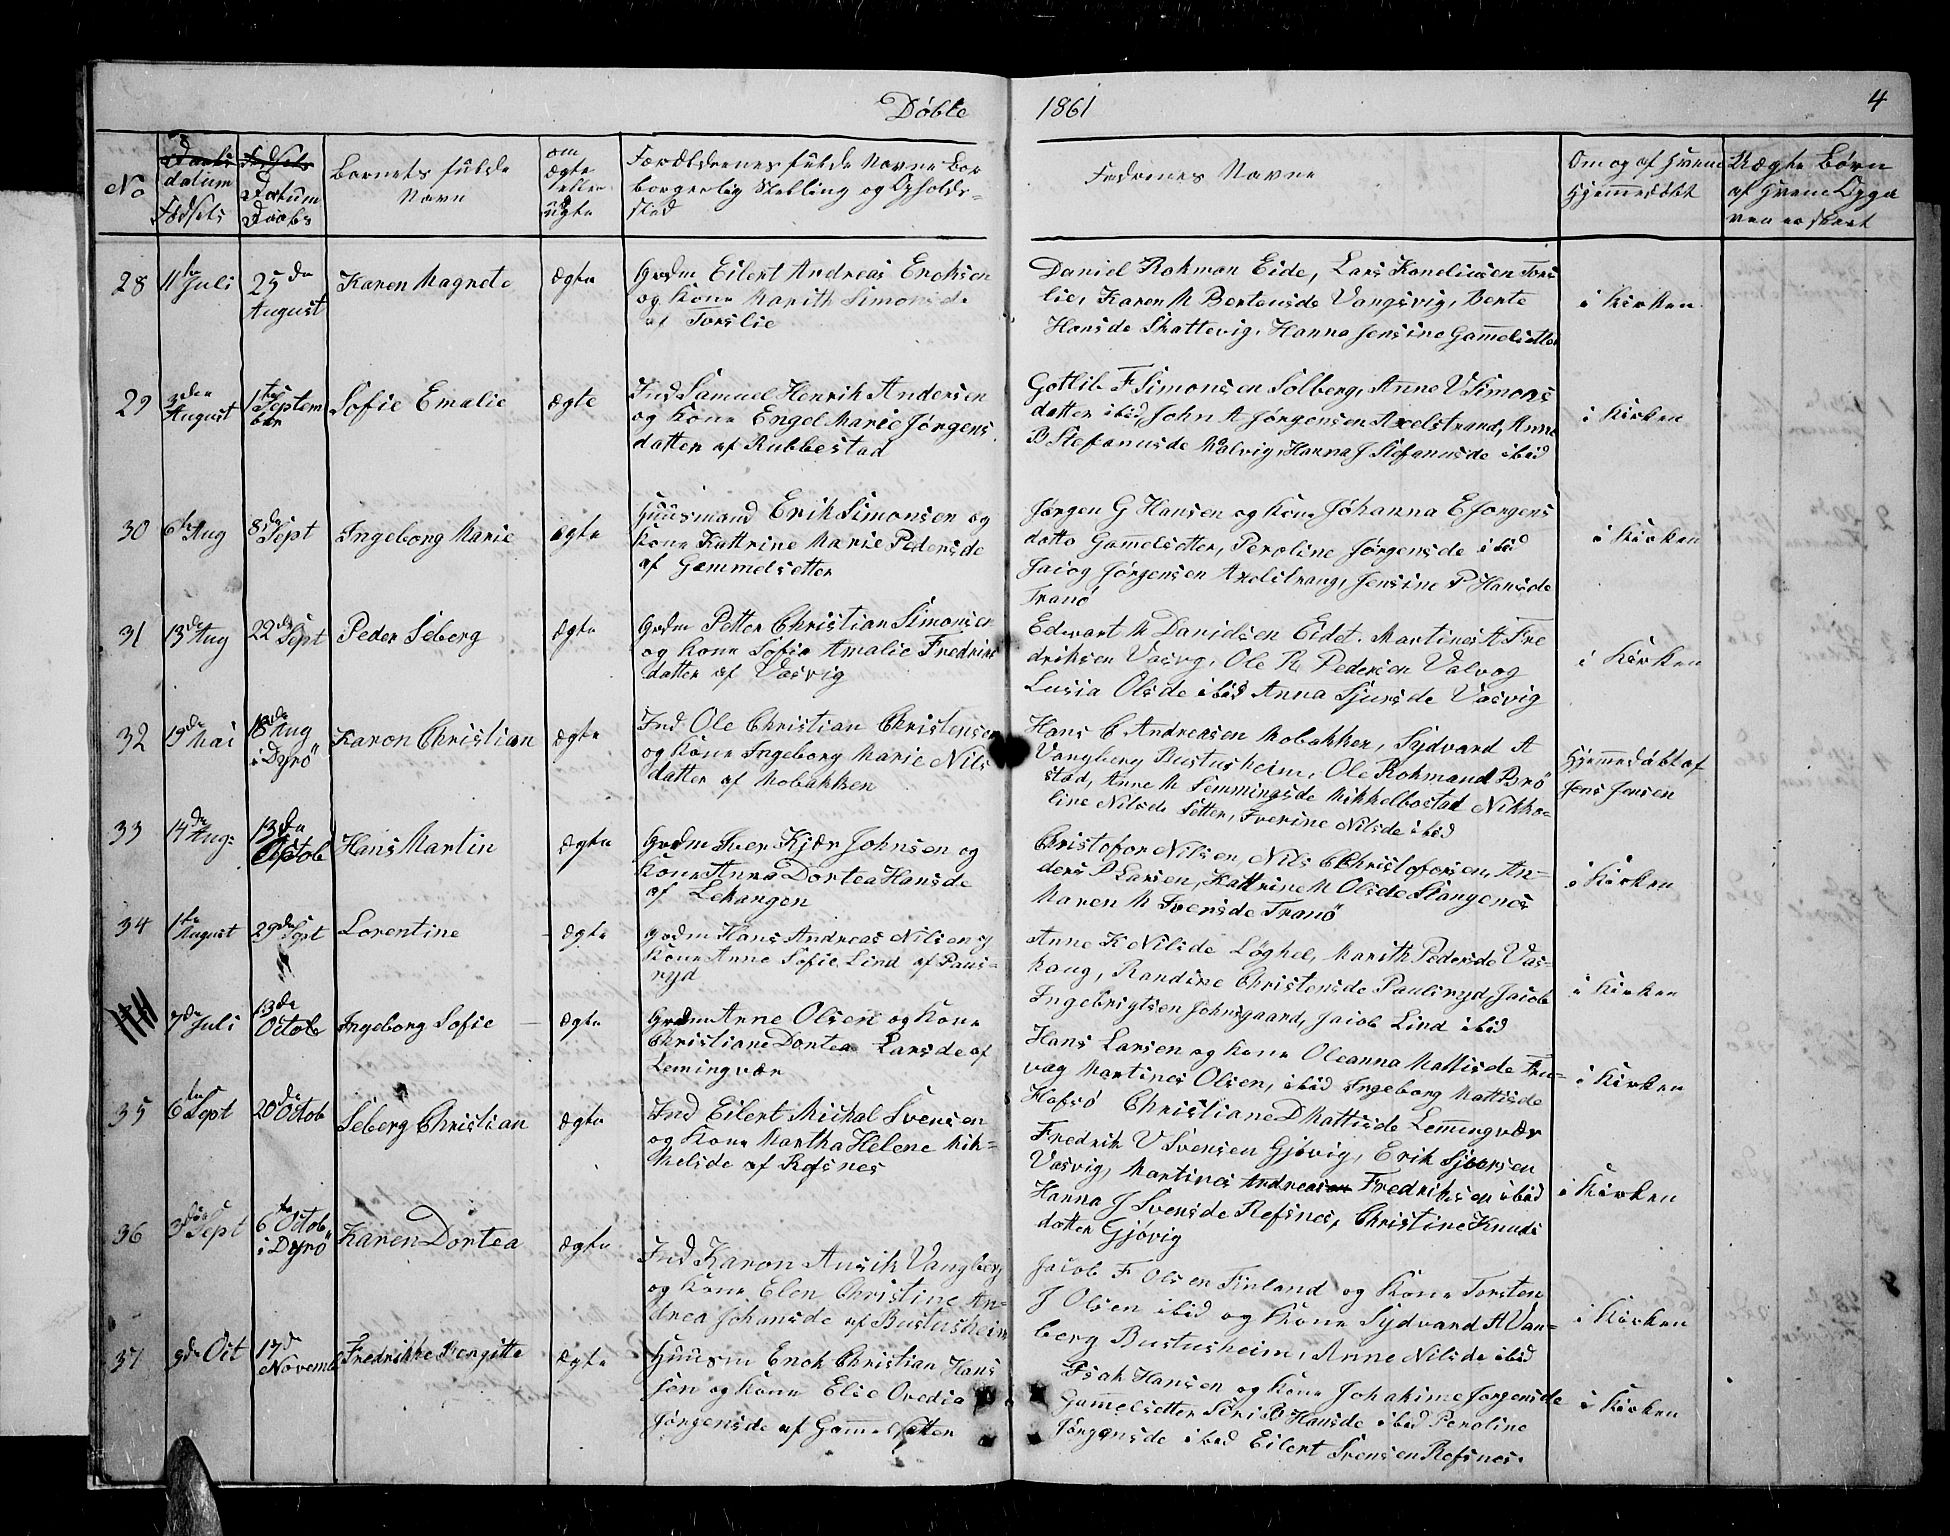 Døbte
1861
4
No
datum
Fødsels
Datum
Daabs
Barnets fulde
Navn
om
ægte
eller
uægte
Forældrenes fulde Navne
borgerlig Stilling og Opholds-
sted
Fadrenes Navne
Om og af hvem
hjemmedøbt
Uægte Børn
28
11te Juli
25de
August
Karen Magrete
Ægte
Grdm Eilert Andreas Enoksen
og Kone Marith Simonsde
af Torslie
Daniel Rokman Eide, Lars Konelusen Tors
lie, Karen M Bertensde Vangsvig, Berte
Hansde Skattevig, Hanna Jensine Gamelsetter
i Kirken
29
3den
August
1te
Septem
ber
Sofie Emalie
Ægte
Ind Samuel Henrik Andersen
og Kone Engel Marie Jørgens
datter af Rubbestad
Gotlib F Simonsen Solberg, Anne V Simons
datter ibid, John A Jørgensen Axelstrand, Anne
B Stefanusde Valvig, Hanna J Stefanusde ibid
i Kirken
30
6te Aug
8de Sept
Ingeborg Marie
Ægte
Huusmand Erik Simonsen og
Kone Kattrine Marie Pedersde
af Gammelsetter
Jørgen G Hansen og Kone Johanna E Jorgens
datte Gamelsetter, Peroline Jørgensde ibid
Jørgensen Axelstrang, Jensine P Hansde
Tranö
i Kirken
31
13de Aug
22de Sept
Peder Seberg
Ægte
Grdm Petter Christian Simonsen
og Kone Sofie Amalie Fredriks
datter af Vasvig
Edvart M Danielsen Eidet. Martines A Fre
driksen Vasvg, Ole R Pedersen Valvog
Lusia Olsde ibid Anna Sjursde Vasvig
i Kirken
32
19de
Mai
18de Aug
i Dyrö
Karon Christian
Ægte
Ind Ole Christian Christensen
og Kone Ingeborg Marie Nils
datter af Mobakken
Hans C Andreasen Mobakken, Sydvard A
Vangberg Bustusheim, Ole Rokmand Brö
stad, Anne M Semmingsde Mikkelbostad Nikko-
line Nilsde Setter, Iverine Nilsde ibid
Hjemmedøbt af
Jens Jensen
33
14de
Aug:
13de
Octob
Hans Martin
Ægte
Grdm Iver Kjær Johnsen og
Kone Anna Dortea Hansde
af Lekangen
Christofor Nilsen, Nils C Christofersen, An-
ders P Larsen, Kattrine M Olsde Stangenes
Maren M Iversde Tranö
i Kirken
34
1te
August
29de Sept
Lorentine
Ægte
Grdm Hans Andreas Nilsen og
Kone Anne Sofie Lind af Pauls-
ryd
Anne K Nilsde Løghel, Marith Pedersde Vas-
haug, Randine Christensde Paulsryd, Jacob
Ingebrigtsen Johnsgaard, Jacob Lind ibid
i Kirken
7de Juli
13de
Octob
Ingeborg Sofie
Ægte
Grdm Arne Olsen og Kone
Christiane Dortea Larsde af
Lemingvær
Hans Larsen og Kone Oleanna Mattisde Tra-
vag Martines Olsen, ibid Ingeborg Mattisde
Hofsö Christiane D Mattisde Lemingvær
i Kirken
35
6te Sept
20de Octob
Seberg Christian
Ægte
Ind Eilert Mickal Svensen
og Kone Martha Helene Mik-
kelsde af Refsnes
Fredrik V Svensen Gjøvig, Erik Sjversen
Vasvig, Martines Andreasen Fredriksen ibid
Hanna J Svensde Refsnes, Christine Knuds
datter Gjøvig
i Kirken
36
3die Sept
6te Octob
i Dyrö
Karen Dortea
Ægte
Ind Karon Ansik Vangberg
og Kone Elen Christine An-
drea Johansde af Bustusheim
Jacob F Olsen Finland og Kone Torsten
J Olsen ibid og Kone Sydvard A Van-
berg Bustusheim, Anne Nilsde ibid
i Kirken
37
9de Oct
17d
Novemb
Fredrikke Bergitte
Ægte
Huusm Enok Christian Hans
sen og Kone Elie Ovedia
Jørgensde af Gamelsetter
Isak Hansen og Kone Johakime Jorgensde
Gamelsetter Siri B Hansde ibid Peroline
Jörgensde ibid Eilert Svensen Refsnes.
i Kirken